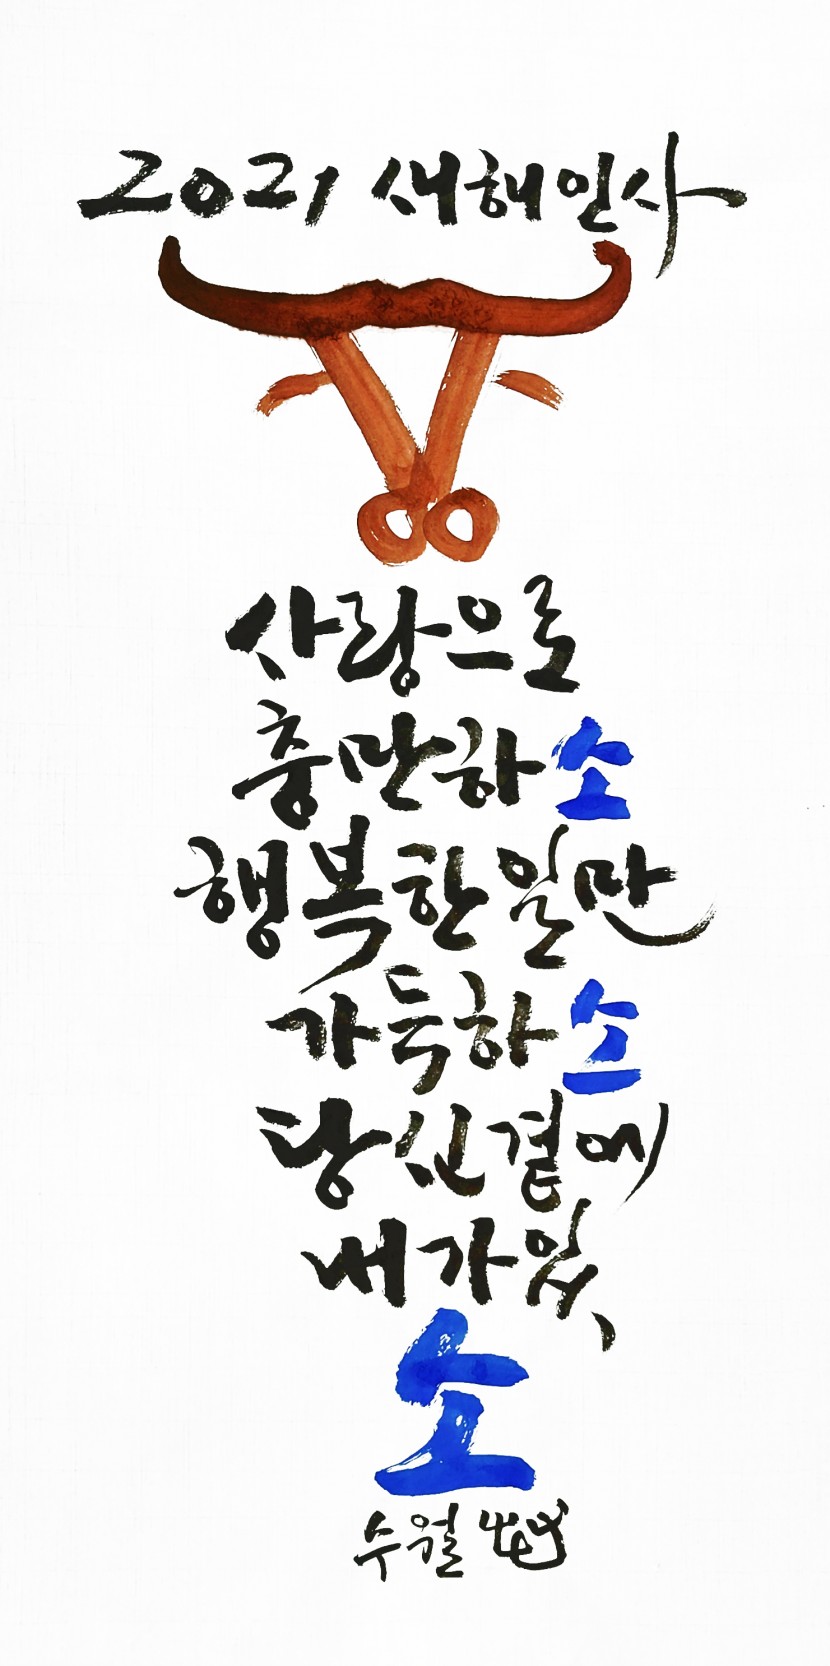 2021 새해인사
사랑으로
충만하소
행복한 일만
가득하소
당신 곁에
내가 있
소
수월